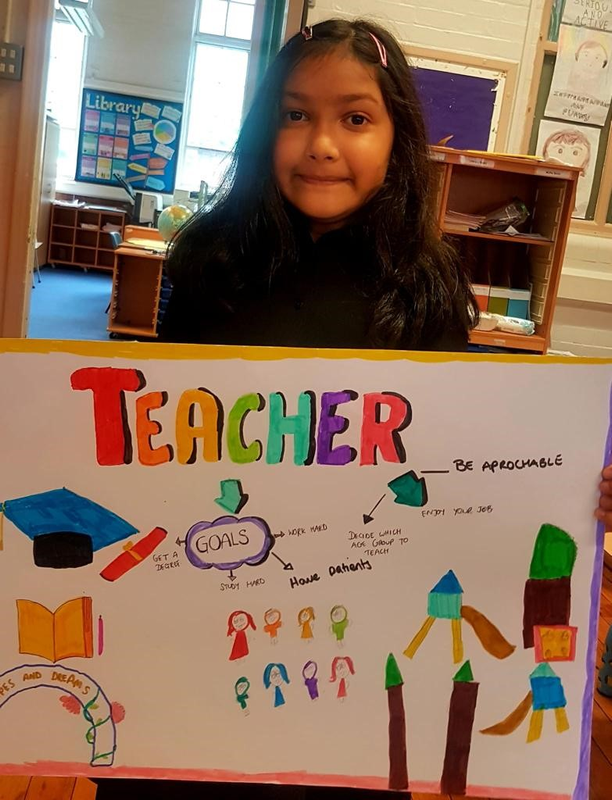 Library
SERIOUS
AND
ACTIVE
AND
FUNNY
TEACHER
BE APROCHABLE
ENJOY YOUR JOB
DECIDE WHICH
AGE GROUP TO
TEACH
GOALS
WORK HARD
GET A
DEGREE
STUDY HARD
Have patients
PES AND DREAMS